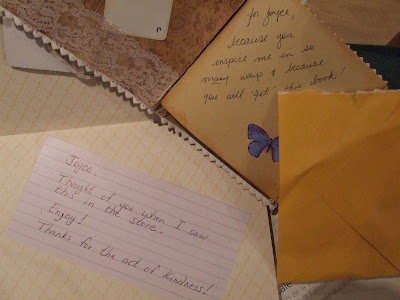 for Joyce,
because you
inspire me in so
many ways & because
you will 'get' this book!
Joyce,
Thought of you when I saw
this in the store.
Enjoy!
Thanks for the act of kindness!